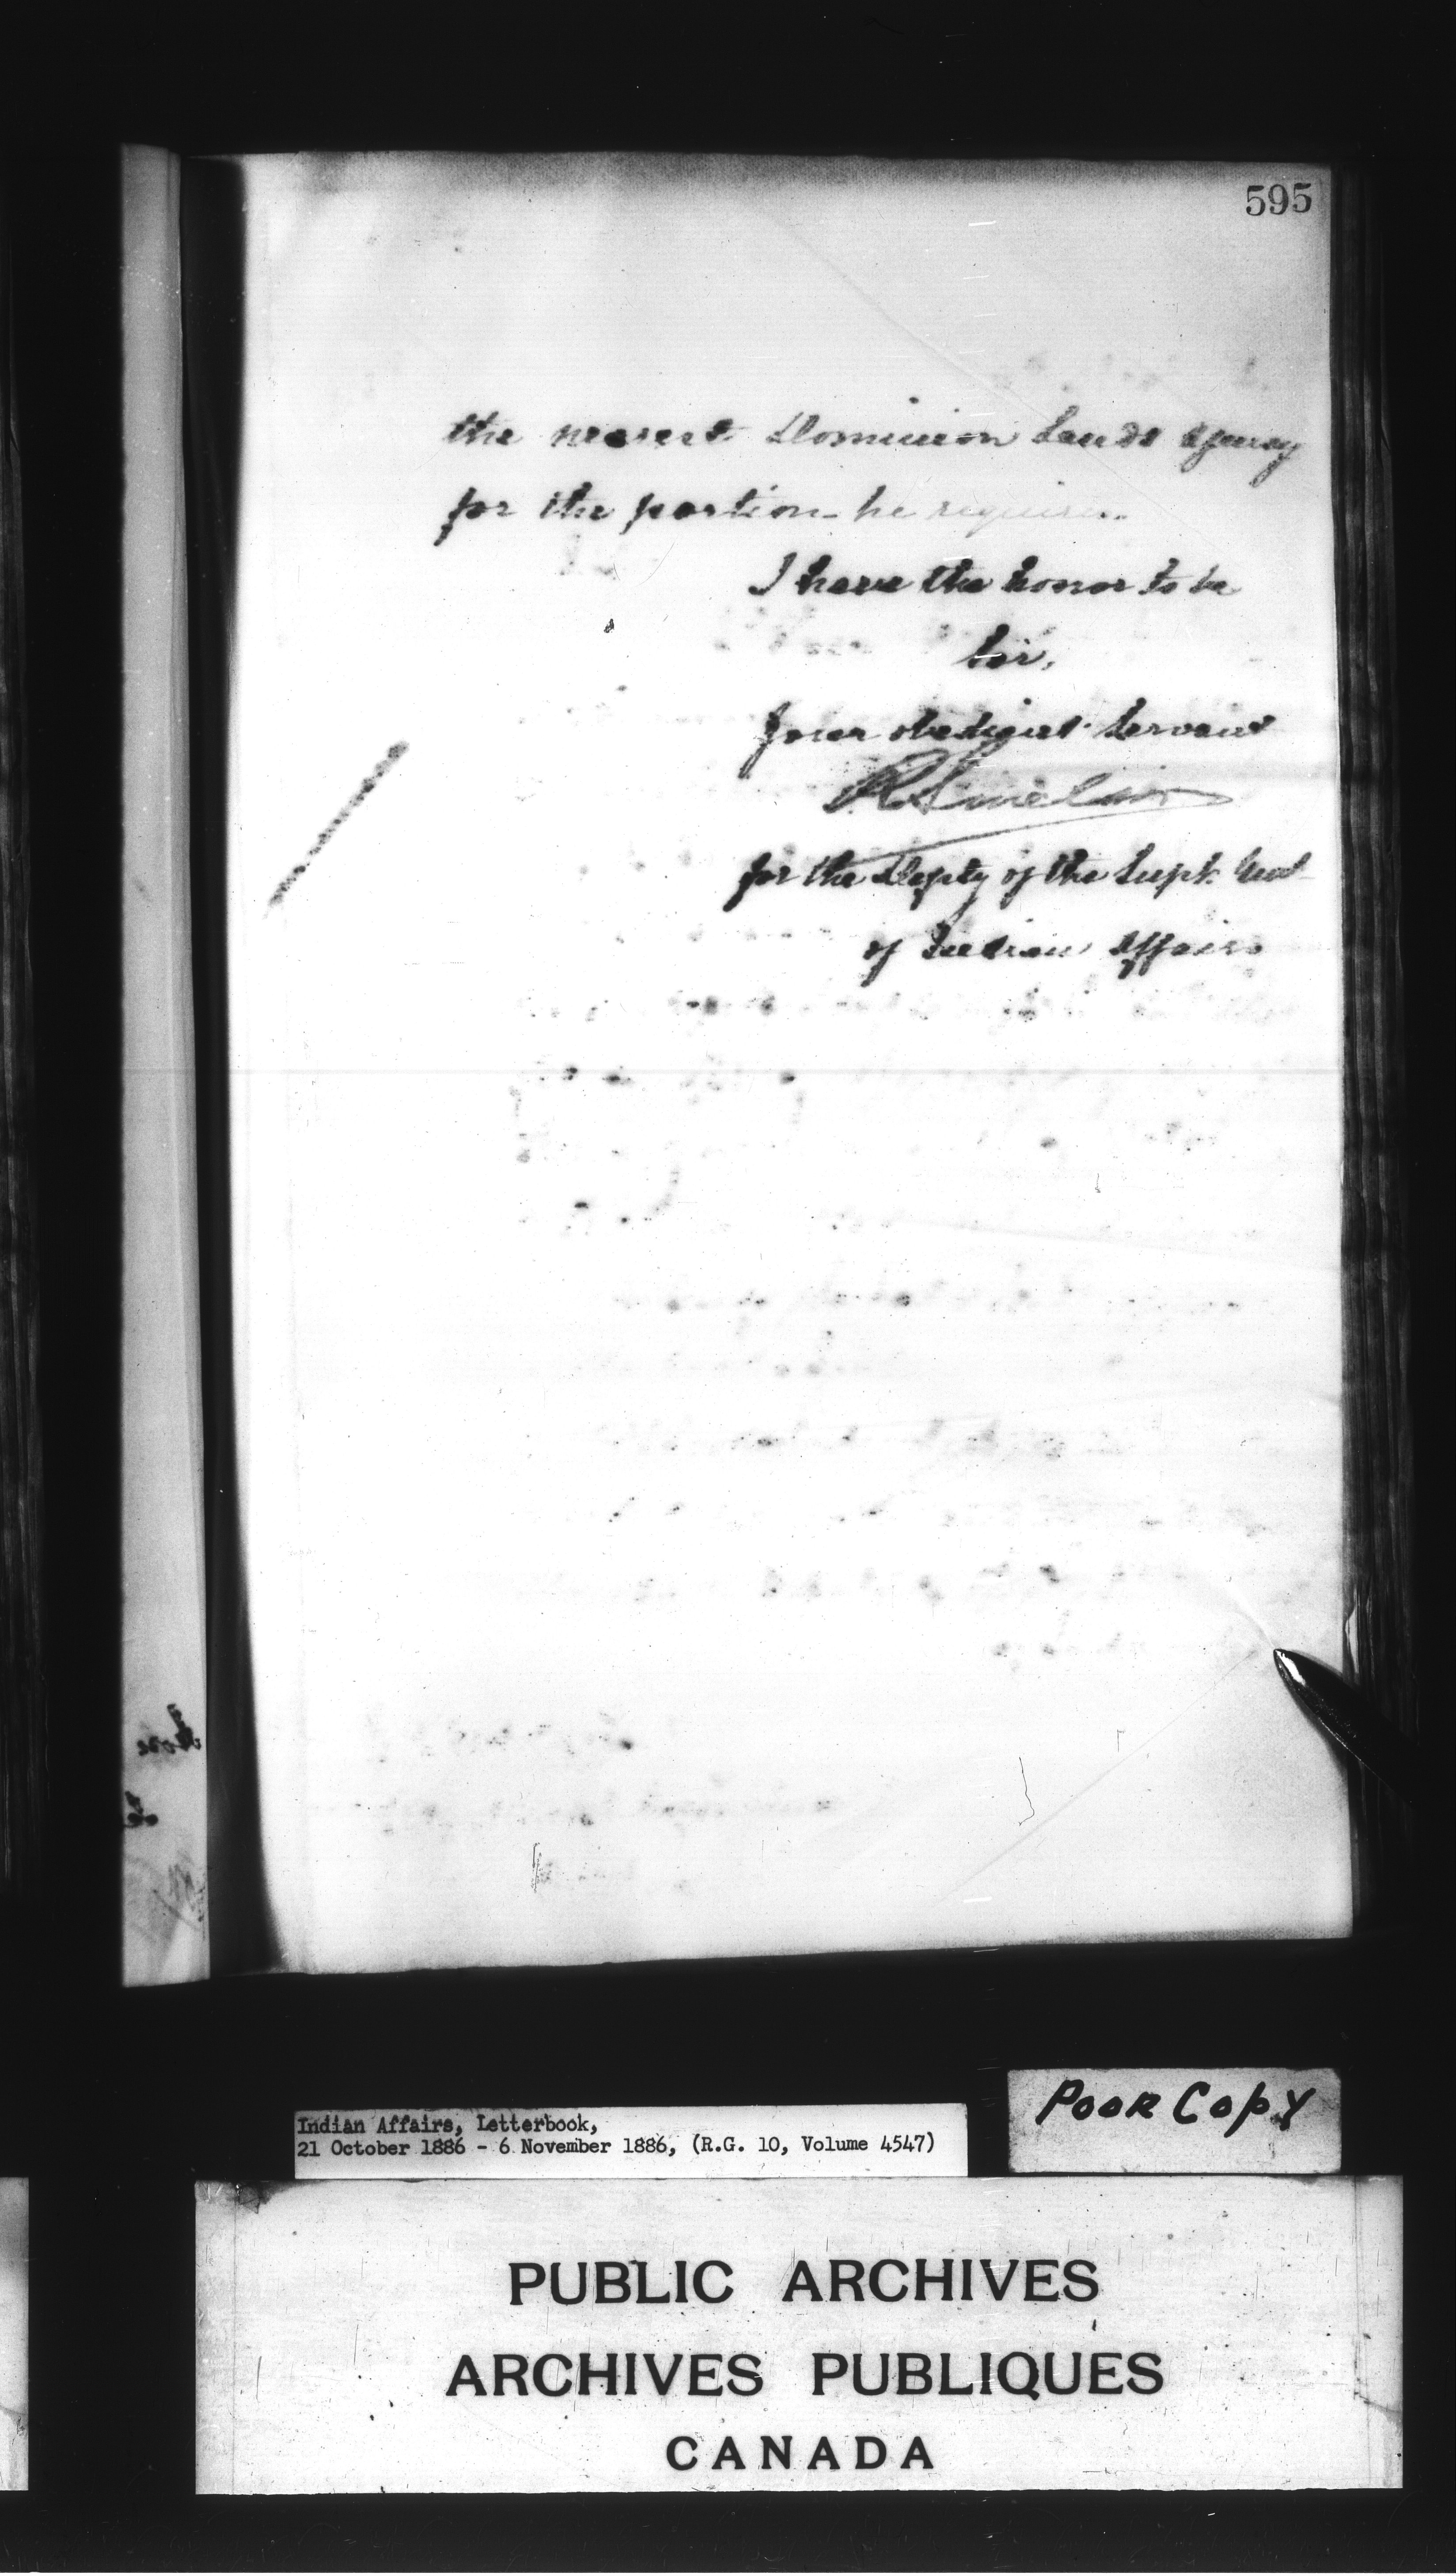 595
the nearest Dominion Lands Agency
for the portion he requires.
I have the honor to be
Sir,
Your obedient Servant
R Sinclair
for the Depty of the Supt. Genl
of Indian Affairs
Indian Affairs, Letterbook,
21 October 1886 - 6 November 1886, (R.G. 10, Volume 4547)
POOR COPY
PUBLIC ARCHIVES
ARCHIVES PUBLIQUES
CANADA